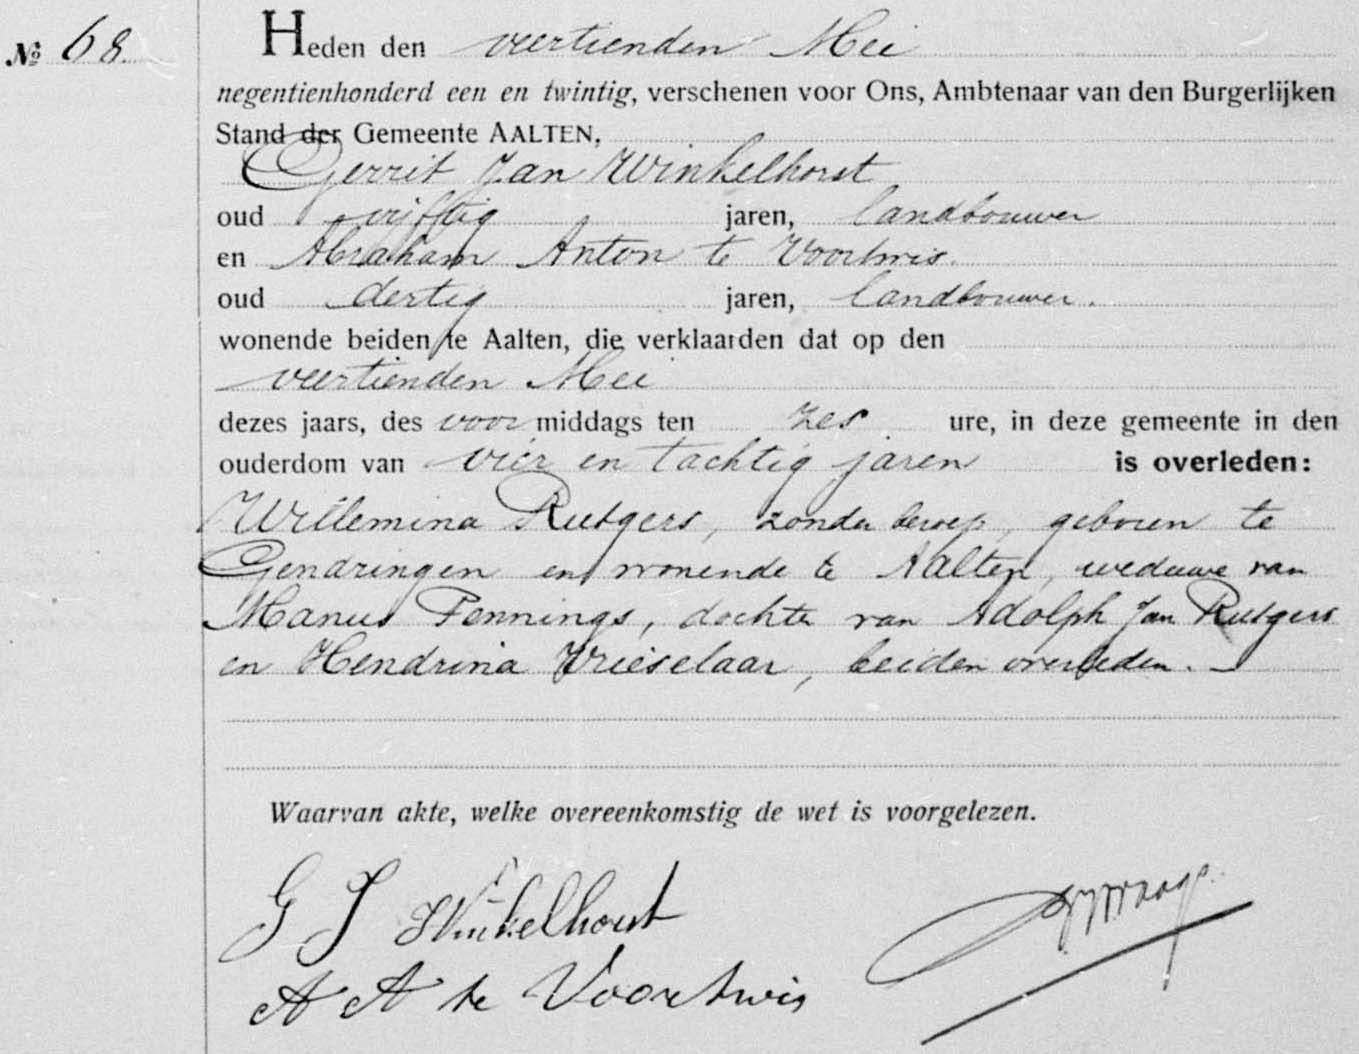 № 68.
Heden den veertienden Mei
negentienhonderd een en twintig, verschenen voor Ons, Ambtenaar van den Burgerlijken
Stand der Gemeente AALTEN,
Gerrit Jan Winkelhorst
oud vijftig jaren, landbouwer
en Abraham Anton te Voortwis.
oud dertig jaren, landbouwer.
wonende beiden te Aalten, die verklaarden dat op den
veertienden Mei
dezes jaars, des voor middags ten zes ure, in deze gemeente in den
ouderdom van vier en tachtig jaren is overleden:
Willemina Rutgers, zonder beroep, geboren te
Gendringen en wonende te Aalten, weduwe van
Manus Pennings, dochter van Adolph Jan Rutgers
en Hendrina Vrieselaar, beiden overleden.
Waarvan akte, welke overeenkomstig de wet is voorgelezen.
G J Winkelhorst
A A te Voortwis